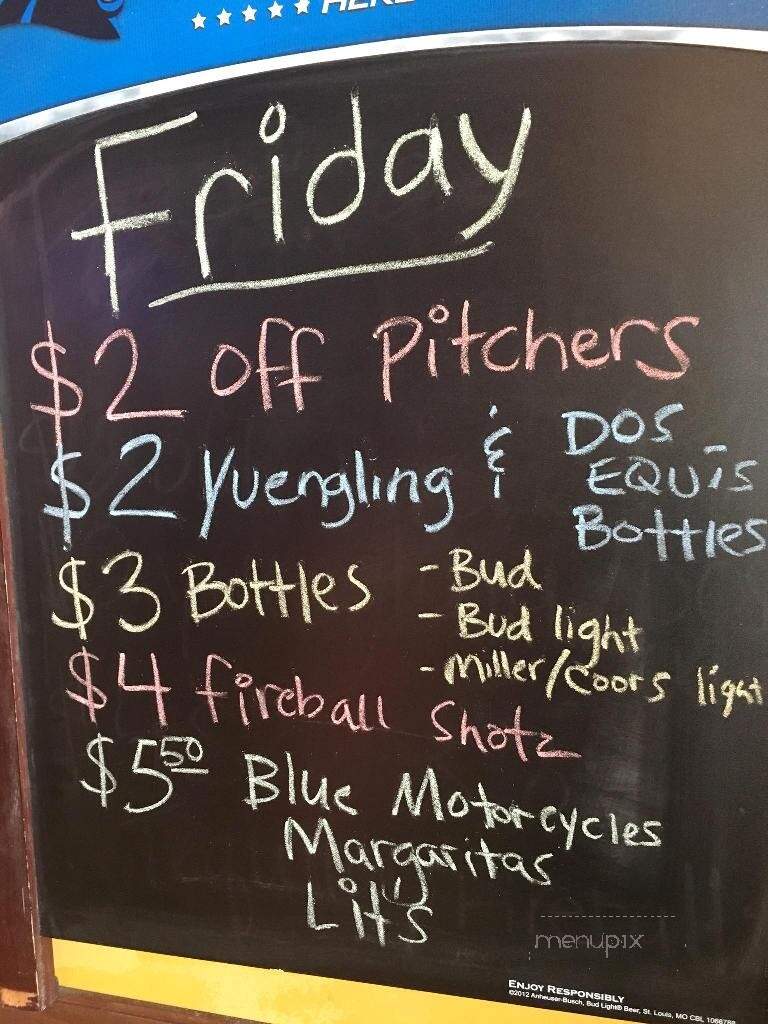 Friday
$2 off Pitchers
$2 Yuengling & DOS EQUIS Bottles
$3 Bottles - Bud
- Bud light
- Miller/Coors light
$4 fireball Shotz
$5.50 Blue Motorcycles
Margaritas
Lit's
menupix
ENJOY RESPONSIBLY
©2012 Anheuser-Busch, Bud Light® Beer, St. Louis, MO CBL